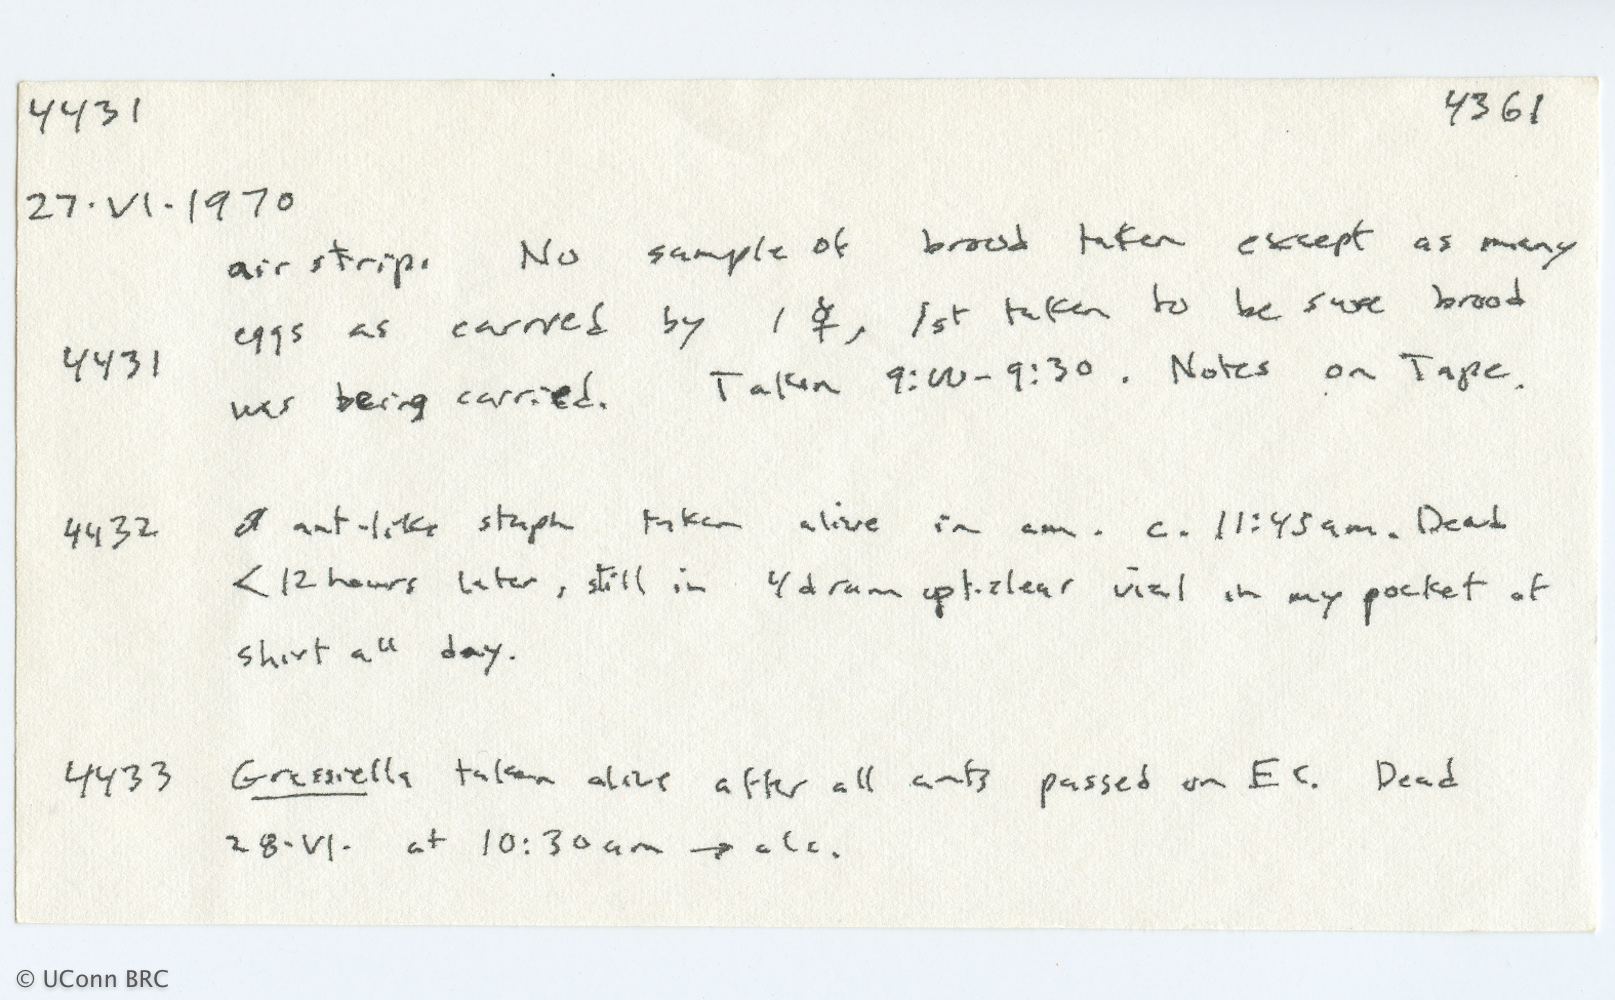 4431 4361
27.VI.1970
air strip. No sample of brood taken except as many
eggs as carried by 1 ☿, 1st taken to be sure brood
4431
was being carried. Taken 9:00-9:30. Notes on Tape.
4432 ant-like staph taken alive in am. c. 11:45am. Dead
<12 hours later, still in 4 dram opt.clear vial in my pocket of
shirt all day.
4433 Grassiella taken alive after all ants passed on EC. Dead
28.VI. at 10:30am → alc.
© UConn BRC